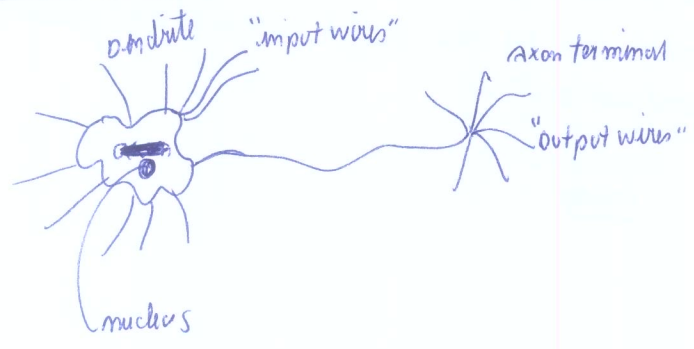 Dendrite
"input wires"
Axon terminal
"output wires"
nucleus